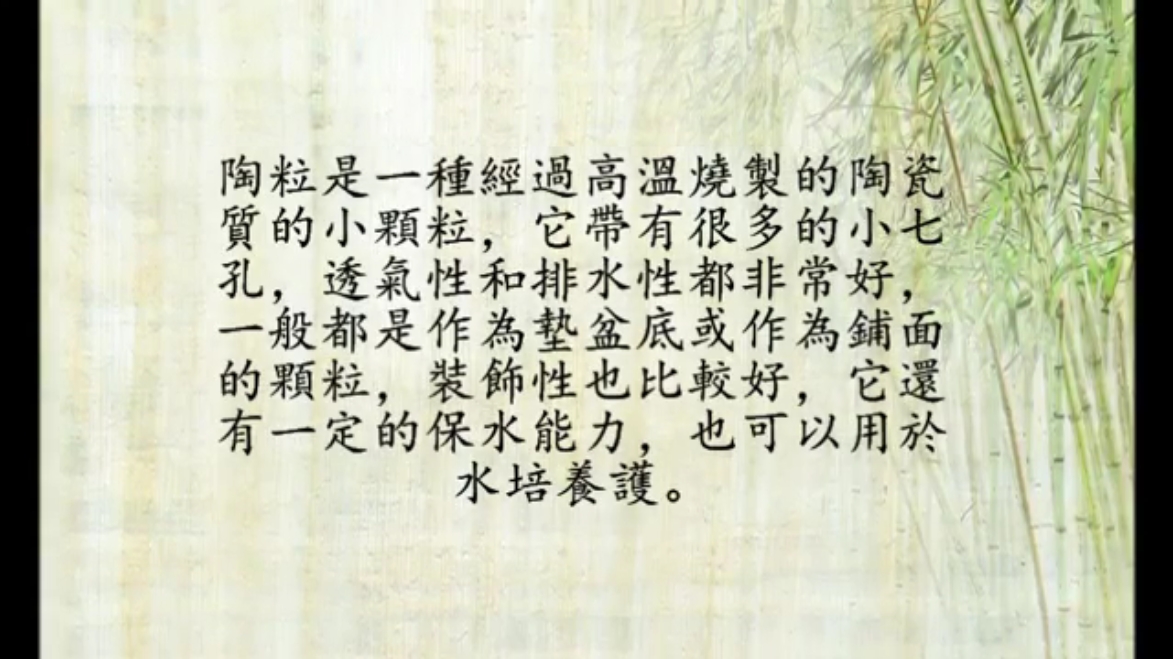 陶粒是一種經過高溫燒製的陶瓷
質的小顆粒，它帶有很多的小七
孔，透氣性和排水性都非常好，
一般都是作為墊盆底或作為鋪面
的顆粒，裝飾性也比較好，它還
有一定的保水能力，也可以用於
水培養護。